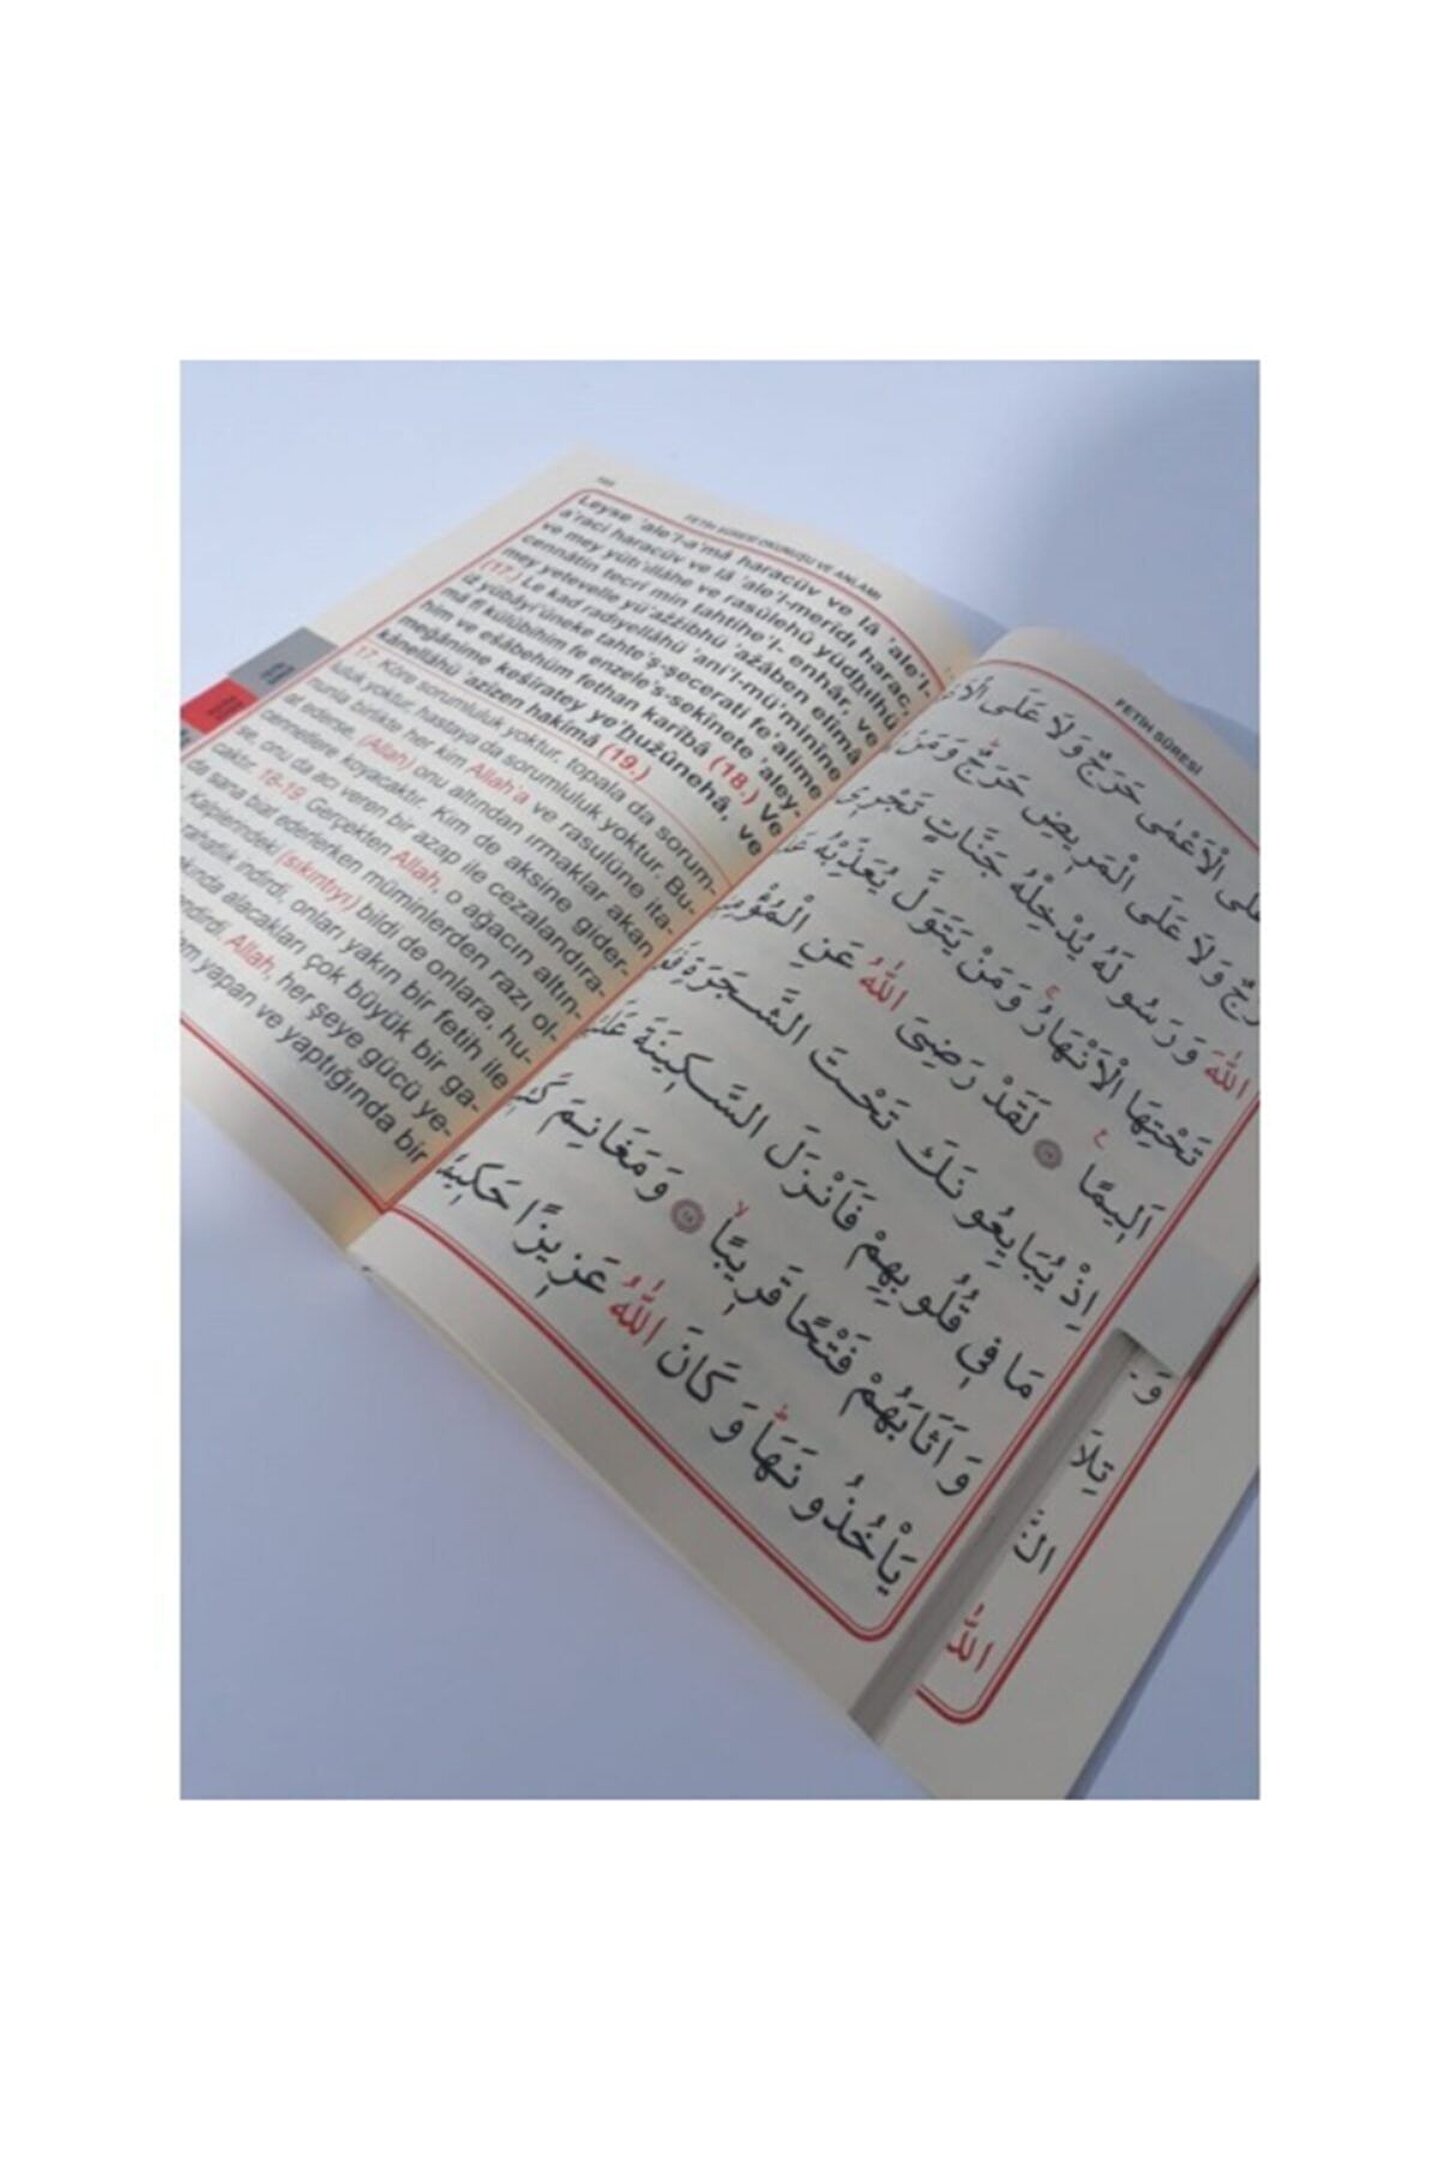 FETİH SÛRESİ OKUNUŞU VE ANLAMI
Leyse 'ale'l-a'mâ haracüv ve lâ 'ale'l-
a'raci haracüv ve lâ 'ale'l-merîdı harac,
ve mey yütı'ıllâhe ve rasûlehû yüdhılhü
cennâtin tecrî min tahtihe'l- enhâr, ve
mey yetevelle yü'ażżibhü 'ażâben elîmâ
(17.) Le kad radıyellâhü 'ani'l-mü'minîne
iż yübâyi'ûneke tahte'ş-şecerati fe'alime
mâ fî kulûbihim fe enzele's-sekînete 'aley-
him ve eśâbehüm fethan karîbâ (18.) Ve
meğânime keśîratey ye'hużûnehâ, ve
kânellâhü 'azîzen hakîmâ (19.)
17. Köre sorumluluk yoktur, topala da sorum-
luluk yoktur, hastaya da sorumluluk yoktur. Bu-
nunla birlikte her kim Allah'a ve rasulüne ita-
at ederse, (Allah) onu altından ırmaklar akan
cennetlere koyacaktır. Kim de aksine gider-
se, onu da acı veren bir azap ile cezalandıra-
caktır. 18-19. Gerçekten Allah, o ağacın altın-
da sana biat ederlerken müminlerden razı ol-
Kalplerindeki (sıkıntıyı) bildi de onlara, hu-
rahatlık indirdi, onları yakın bir fetih ile
alacakları çok büyük bir ga-
Allah, her şeye gücü ye-
yapan ve yaptığında bir
FETİH SÛRESİ
الْاَعْمٰى حَرَجٌ وَلَا عَلَى
وَلَا عَلَى الْمَر۪يضِ حَرَجٌۜ وَمَنْ
اللّٰهَ وَرَسُولَهُ يُدْخِلْهُ جَنَّاتٍ تَجْر۪ي
تَحْتِهَا الْاَنْهَارُۚ وَمَنْ يَتَوَلَّ يُعَذِّبْهُ
اَل۪يمًاۚ ﴿١٧﴾ لَقَدْ رَضِيَ اللّٰهُ عَنِ
اِذْ يُبَايِعُونَكَ تَحْتَ الشَّجَرَةِ
مَا ف۪ي قُلُوبِهِمْ فَاَنْزَلَ السَّك۪ينَةَ
وَاَثَابَهُمْ فَتْحًا قَر۪يبًاۙ ﴿١٨﴾ وَمَغَانِمَ
يَأْخُذُونَهَاۜ وَكَانَ اللّٰهُ عَز۪يزًا